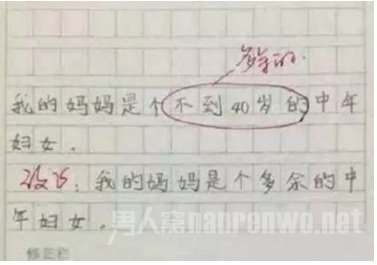 多余的.
我的妈妈是个不到40岁的中年
妇女.
改正:我的妈妈是个多余的中
年妇女.
男人窝nanrenwo.net
修正栏